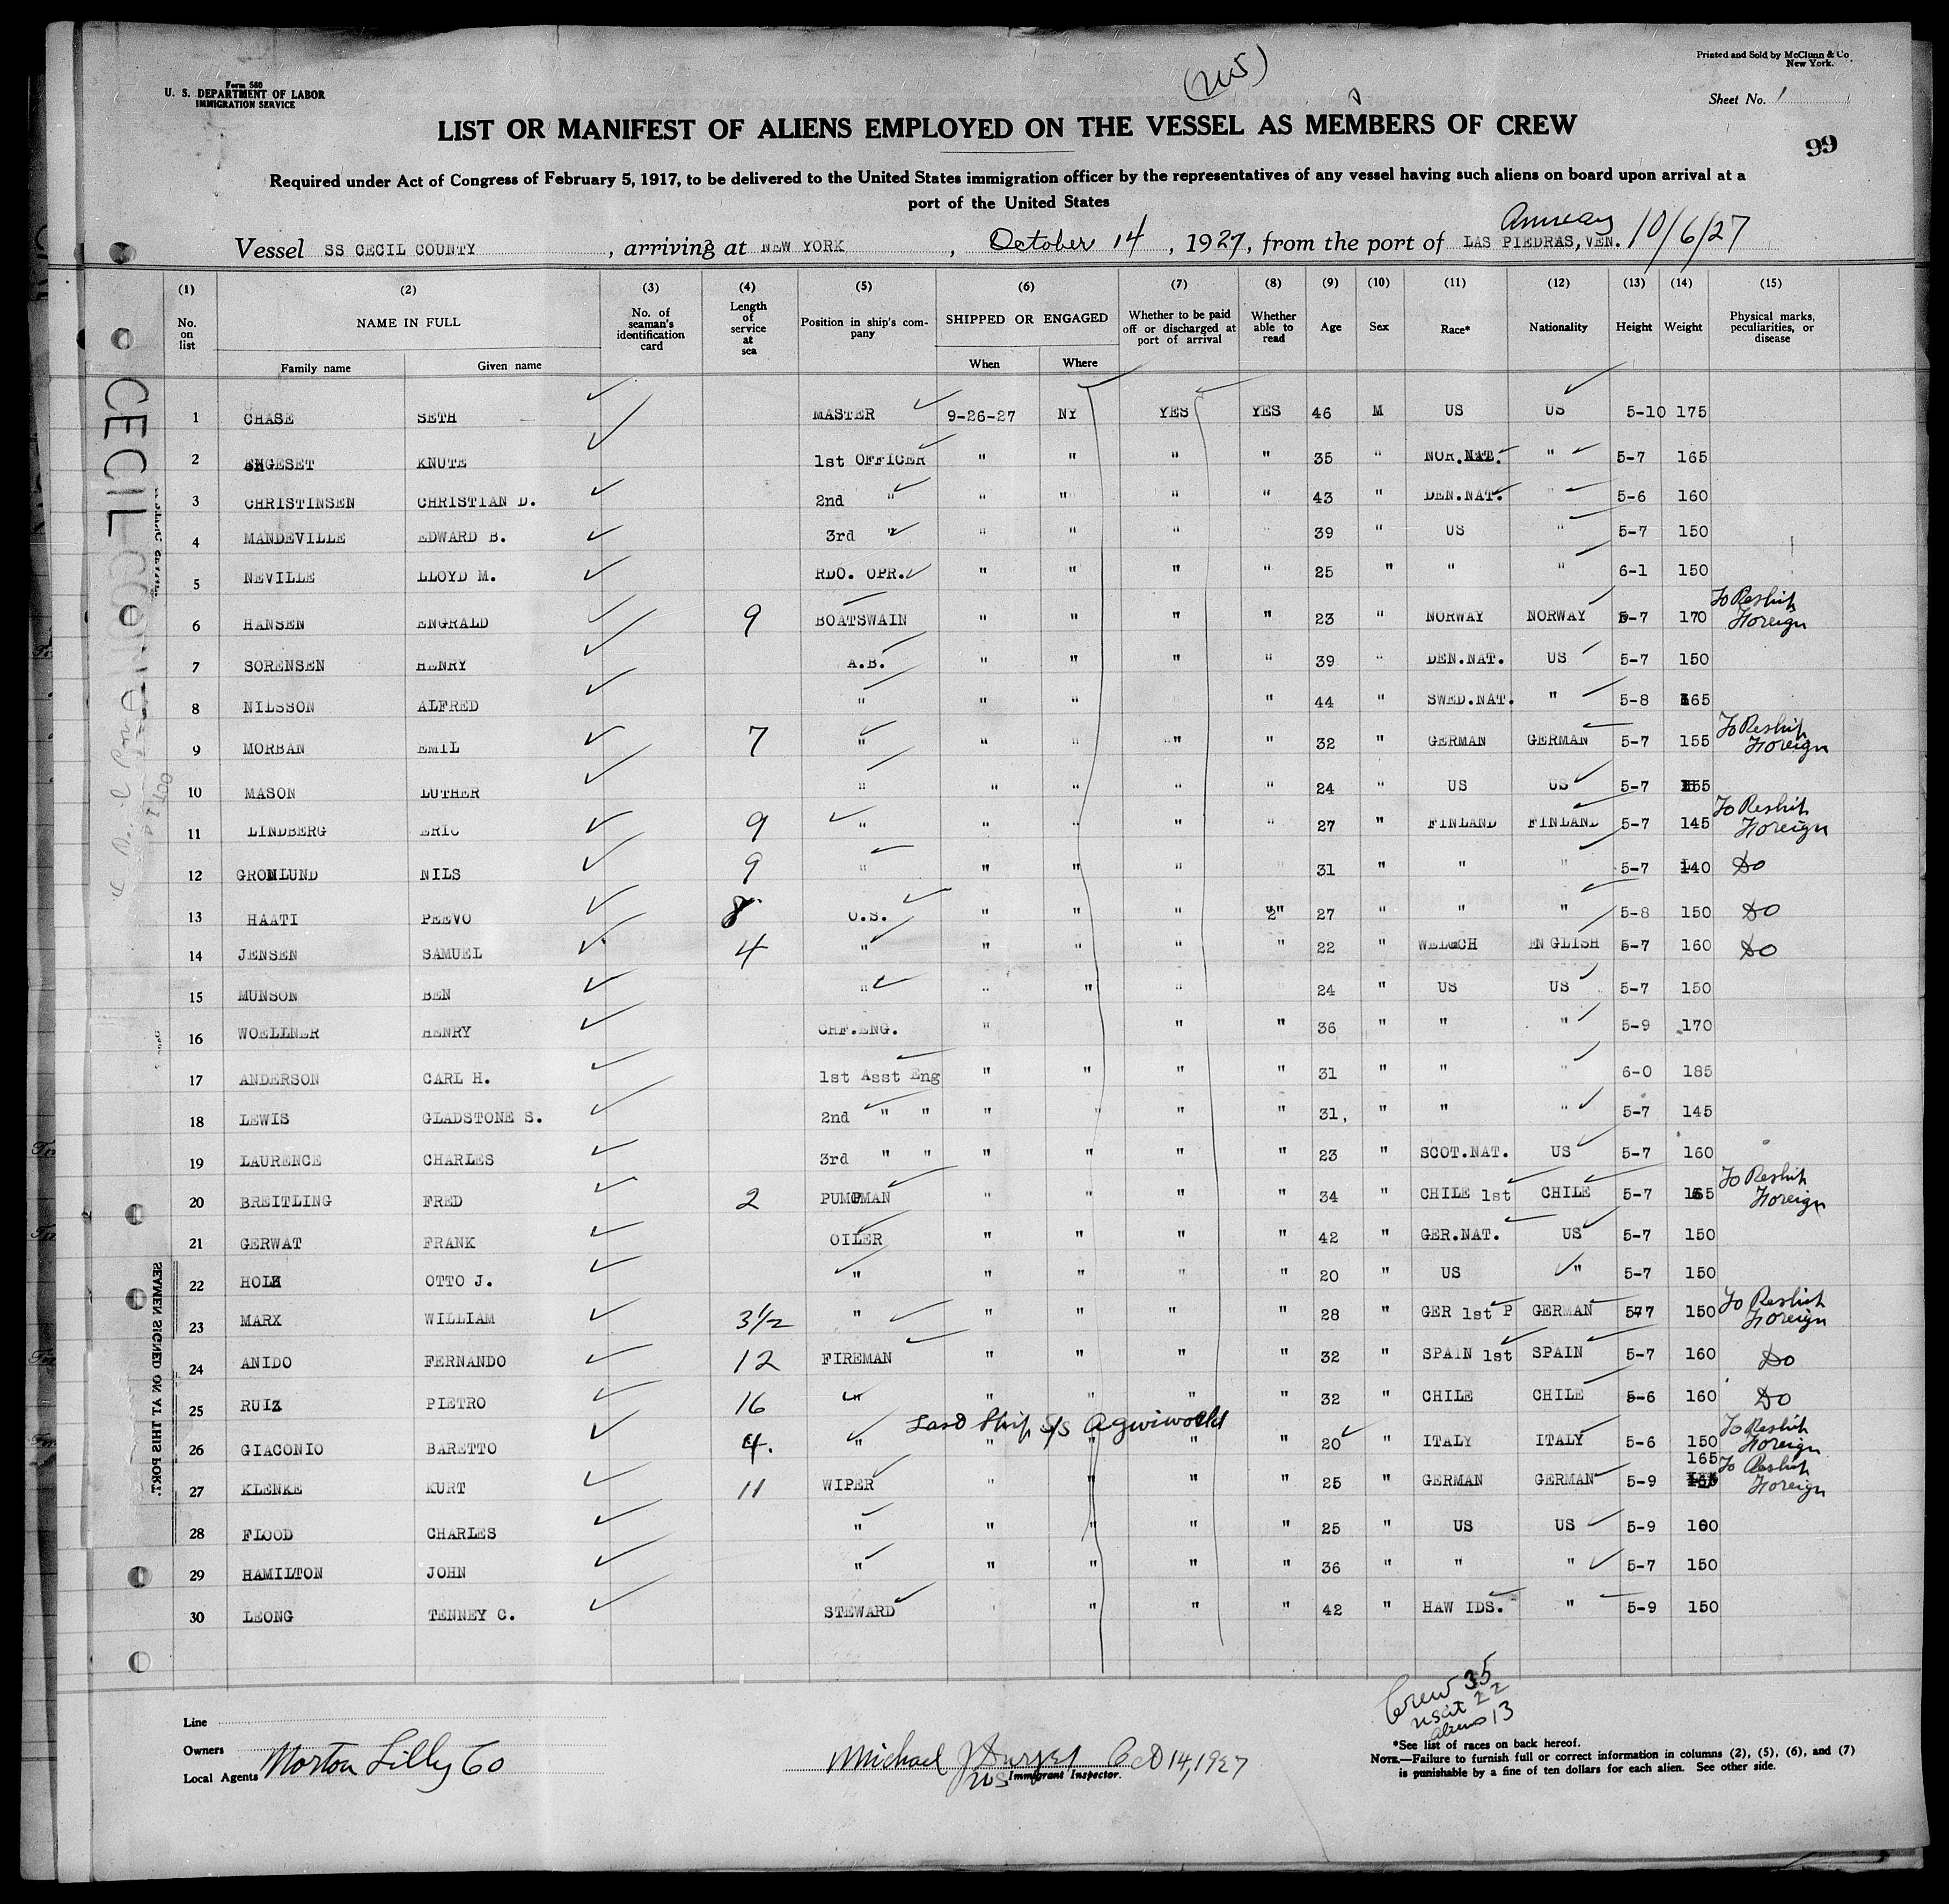 Form 580
U. S. DEPARTMENT OF LABOR
IMMIGRATION SERVICE
Printed and Sold by McClunn & Co
New York.
Sheet No. 1
99
LIST OR MANIFEST OF ALIENS EMPLOYED ON THE VESSEL AS MEMBERS OF CREW
Required under Act of Congress of February 5, 1917, to be delivered to the United States immigration officer by the representatives of any vessel having such aliens on board upon arrival at a
port of the United States
Vessel SS CECIL COUNTY, arriving at NEW YORK, October 14, 1927, from the port of LAS PIEDRAS, VEN. 10/6/27
(1) (2) (3) (4) (5) (6) (7) (8) (9) (10) (11) (12) (13) (14) (15)
No. on list NAME IN FULL No. of seaman's identification card Length of service at sea Position in ship's company SHIPPED OR ENGAGED Whether to be paid off or discharged at port of arrival Whether able to read Age Sex Race* Nationality Height Weight Physical marks, peculiarities, or disease
Family name Given name When Where
1 CHASE SETH MASTER 9-26-27 NY YES YES 46 M US US 5-10 175
2 ENGESET KNUTE 1st OFFICER " " " " 35 " NOR.NAT. " 5-7 165
3 CHRISTINSEN CHRISTIAN D. 2nd " " " " 43 " DEN.NAT. " 5-6 160
4 MANDEVILLE EDWARD B. 3rd " " " " 39 " US " 5-7 150
5 NEVILLE LLOYD M. RDO. OPR. " " " " 25 " " " 6-1 150
6 HANSEN ENGRALD 9 BOATSWAIN " " " " 23 " NORWAY NORWAY 5-7 170 To Reship Foreign
7 SORENSEN HENRY A.B. " " " " 39 " DEN.NAT. US 5-7 150
8 NILSSON ALFRED " " " " 44 " SWED.NAT. " 5-8 165
9 MORBAN EMIL 7 " " " " " 32 " GERMAN GERMAN 5-7 155 To Reship Foreign
10 MASON LUTHER " " " " " 24 " US US 5-7 155
11 LINDBERG ERIC 9 " " " " " 27 " FINLAND FINLAND 5-7 145 To Reship Foreign
12 GRONLUND NILS 9 " " " " 31 " " " 5-7 140 Do
13 HAATI PEEVO 8 O.S. " " " " 27 " " " 5-8 150 Do
14 JENSEN SAMUEL 4 " " " " " 22 " WELCH ENGLISH 5-7 160 Do
15 MUNSON BEN " " " " 24 " US US 5-7 150
16 WOELLNER HENRY CHF.ENG. " " " 36 " " " 5-9 170
17 ANDERSON CARL H. 1st Asst Eng " " " " 31 " " " 6-0 185
18 LEWIS GLADSTONE S. 2nd " " " " " " 31. " " " 5-7 145
19 LAURENCE CHARLES 3rd " " " " " " 23 " SCOT.NAT. US 5-7 160
20 BREITLING FRED 2 PUMPMAN " " " " 34 " CHILE 1st CHILE 5-7 155 To Reship Foreign
21 GERWAT FRANK OILER " " " " 42 " GER.NAT. US 5-7 150
22 HOLZ OTTO J. " " " " " 20 " US " 5-7 150
23 MARX WILLIAM 3½ " " " " " 28 " GER 1st P GERMAN 5-7 150 To Reship Foreign
24 ANIDO FERNANDO 12 FIREMAN " " " " 32 " SPAIN 1st SPAIN 5-7 160 Do
25 RUIZ PIETRO 16 " " " " " 32 " CHILE CHILE 5-6 160 Do
Last Ship S/S Agwiworld
26 GIACONIO BARETTO 4. " " " " " 20 " ITALY ITALY 5-6 150 To Reship Foreign
27 KLENKE KURT 11 WIPER " " " " 25 " GERMAN GERMAN 5-9 165 To Reship Foreign
28 FLOOD CHARLES " " " " " 25 " US US 5-9 160
29 HAMILTON JOHN " " " " " 36 " " " 5-7 150
30 LEONG TENNEY C. STEWARD " " " 42 " HAW IDS. " 5-9 150
CECIL COUNTY
SEAMEN SIGNED ON AT THIS PORT.
Crew 35
uscit 22
aliens 13
Line
Owners
Local Agents Morton Lilly Co
Michael Oct 14, 1927
Immigrant Inspector.
*See list of races on back hereof.
NOTE.—Failure to furnish full or correct information in columns (2), (5), (6), and (7)
is punishable by a fine of ten dollars for each alien. See other side.